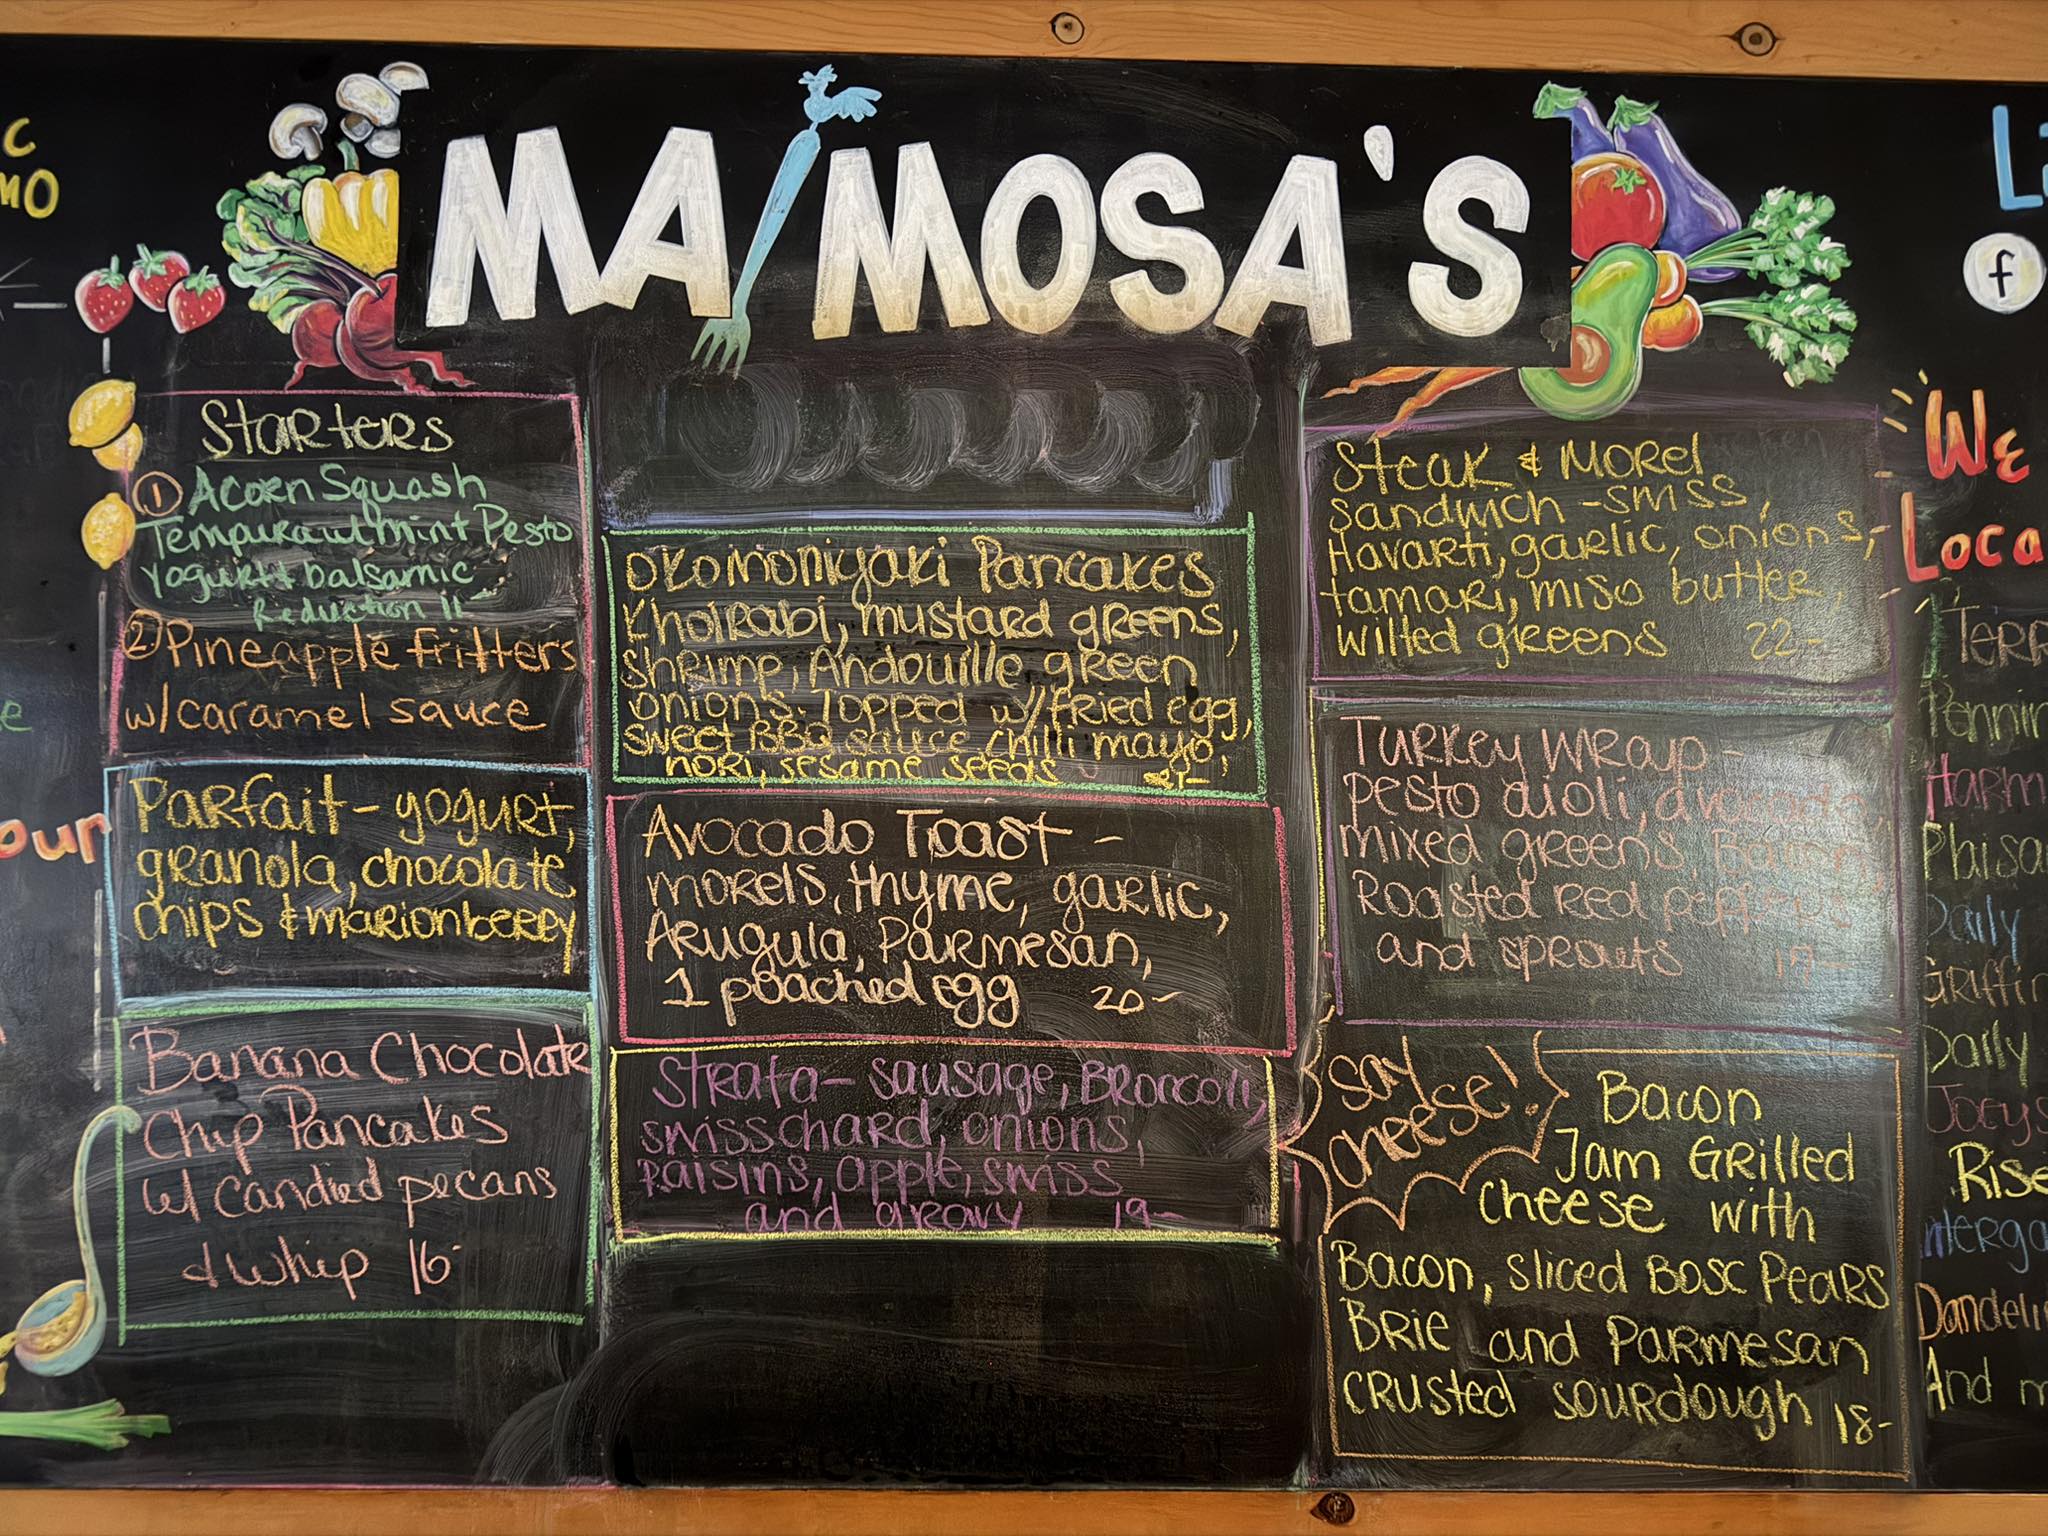 C
MO
MA/MOSA'S
Li
f
STARTERS
① Acorn Squash
Tempura w/ mint Pesto
Yogurt & balsamic
Reduction 11
② Pineapple Fritters
w/ caramel sauce
Parfait - yogurt,
granola, chocolate
chips & marionberry
Banana Chocolate
Chip Pancakes
w/ Candied pecans
& whip 16-
e
our
Okomoniyaki Pancakes
Kholrabi, mustard greens,
shrimp, Andouille green
onions. Topped w/ fried egg,
sweet BBQ sauce, chilli mayo,
nori, sesame seeds
Avocado Toast -
morels, thyme, garlic,
Arugula, Parmesan,
1 poached egg 20-
Strata - sausage, Broccoli,
swiss chard, onions,
raisins, apple, swiss
and gravy 19-
Steak & Morel
sandwich - swiss,
Havarti, garlic, onions,
tamari, miso butter,
wilted greens 22-
Turkey Wrap -
pesto aioli, avocado,
mixed greens, Bacon,
Roasted red peppers
and sprouts 17-
Say
cheese!
Bacon
Jam Grilled
cheese with
Bacon, sliced Bosc Pears
Brie and Parmesan
crusted sourdough 18-
We
Loca
Terr
Pennin
Harm
Plaisa
Daily
Griffin
Daily
Joeys
Rise
nterga
Dandeli
And m